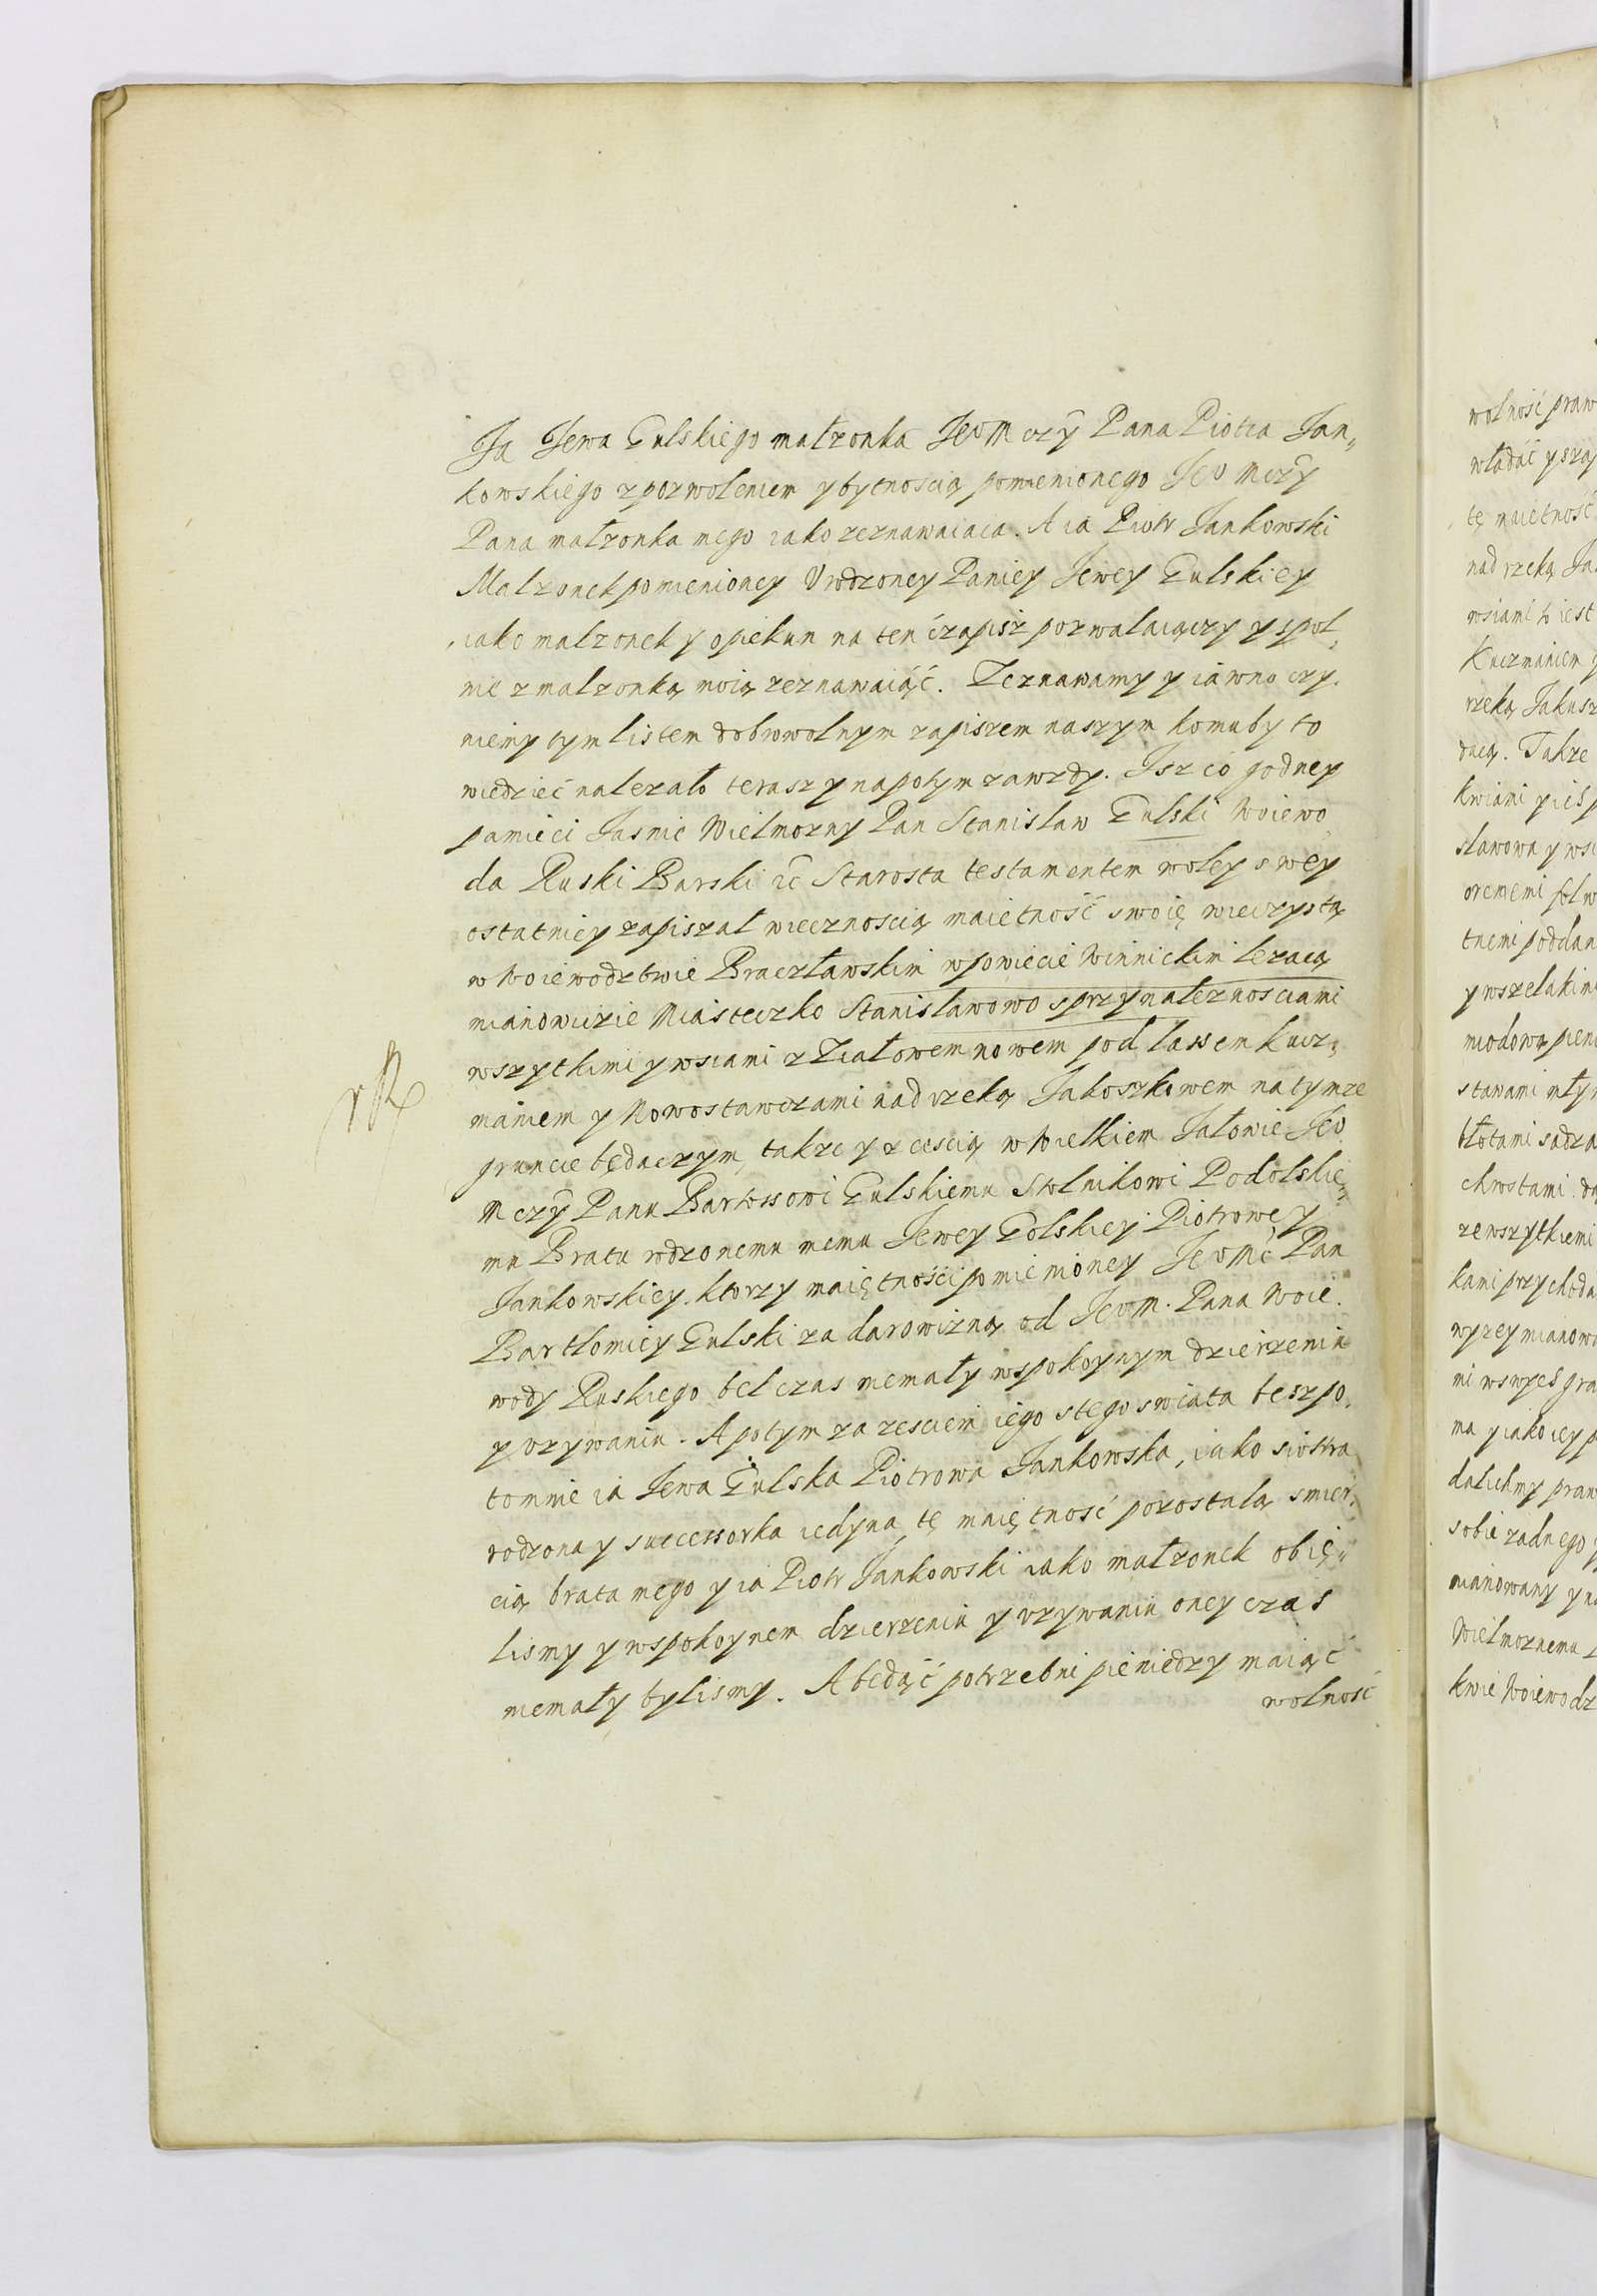 Ja Jewa Gulskiego małzonka JevM czy Pana Piotra Jan„
kowskiego zpozwoleniem y bytnoscią pomienionego Jev Mczy
Pana małzonka mego iako zeznawaiaca. A ia Piotr Jankowski
Malzonek pomienioney Vrodzoney Paniey Jewey Gulskiey
iako malzonek y opiekun na ten czapisz pozwalaiączy y spol„
nie z malzonką moią zeznawaiąć. Zeznawamy y iawno czy„
niemy tym listem dobrowolnym zapiszem naszym komuby to
wiedzieć nalezało terasz y napotym zawzdy. Isz co godney
pamieci Jasnie Wielmozny Pan Stanislaw Gulski Woiewo
da Ruski Barski &c Starosta testamentem woley swey
ostatniey zapiszał wiecznoscią maietność swoię wieczystą
w Woiewodztwie Braczławskim wpowiecie Winnickim lezacą
mianowicie Miasteczko Stanisławowo sprzynaleznosciami
wszytkimi y wsiami z Ziałowem nowem pod lassem kucz„
maniem y Nowostawczami nad rzeką Jakoszkowem na tymze
gruncie będaczym, takze y z cescią w Wielkiem Jałowie Jev
Mczy Panu Bartossowi Gulskiemu Stolnikowi Podolskie„
mu Bratu rodzonemu memu Jewey Golskiey Piotrowey
Jankowskiey. ktorzy maiętności pomienioney JevMć Pan
Bartłomiey Gulski za darowizną od JevM. Pana Woie„
wody Ruskiego bel czas niemały wspokoynym dzierzeniu
y vzywaniu. A potym za zesciem iego stego swiata beszpo„
tomnie ia Jewa Gulska Piotrowa Jankowska, iako siostra
rodzona y successorka iedyna tę maiętność pozostalą smier„
cią brata mego y ia Piotr Jankowski iako małzonek obię„
lismy y wspokoynem dzierzeniu y vzywaniu oney czas
niemały bylismy. A bedąć potrzebni pieniedzy maiąć
wolność
rR
wolność praw
władać y szaf
tę maietność
nad rzeką Ja
wsiami to iest
Kuczmaniem y
rzeką Jakusz
dacą. Takze
kwiami y ieś p
sławowa y wsi
oremi fol w
tnemi poddan
y wszelakimi
miodową pieni
stawami młyn
błotami sadza
chwstami. dą
ze wszytkiemi
kami przychoda
wyzey mianowa
mi wswyeś gra
ma y iako iey p
dalichmy praw
sobie zadnego y
mianowany y na
Wielmoznemu
kwie Woiewodz